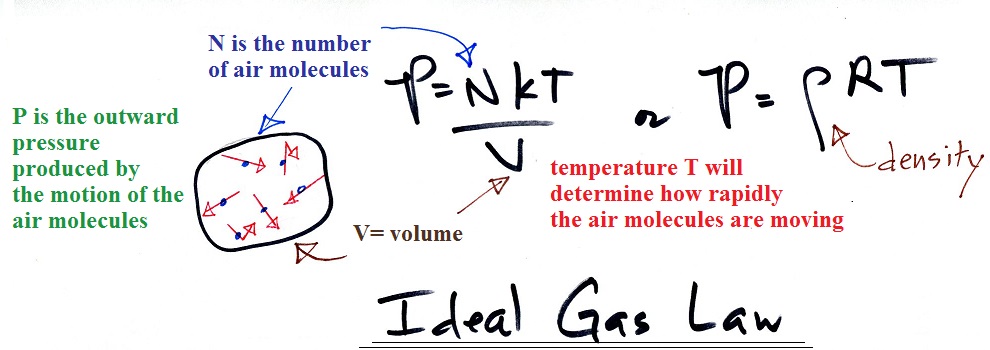 N is the number
of air molecules
P = NkT
V
or P = ρRT
density
P is the outward
pressure
produced by
the motion of the
air molecules
temperature T will
determine how rapidly
the air molecules are moving
V= volume
Ideal Gas Law